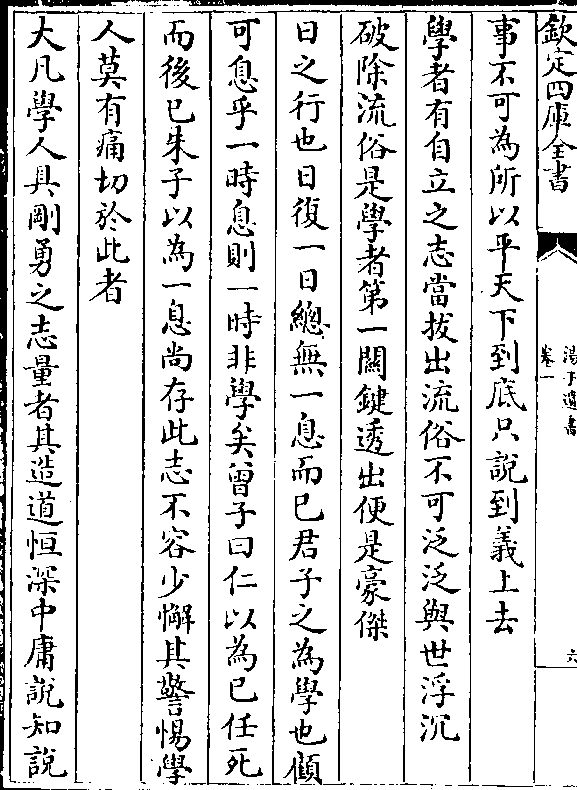 欽定四庫全書
湯子遺書
卷一
六
事不可為所以平天下到底只說到義上去
學者有自立之志當拔出流俗不可泛泛與世浮沉
破除流俗是學者第一關鍵透出便是豪傑
日之行也日復一日總無一息而已君子之為學也顧
可息乎一時息則一時非學矣曾子曰仁以為已任死
而後已朱子以為一息尚存此志不容少懈其警惕學
人莫有痛切於此者
大凡學人具剛勇之志量者其造道恒深中庸說知說